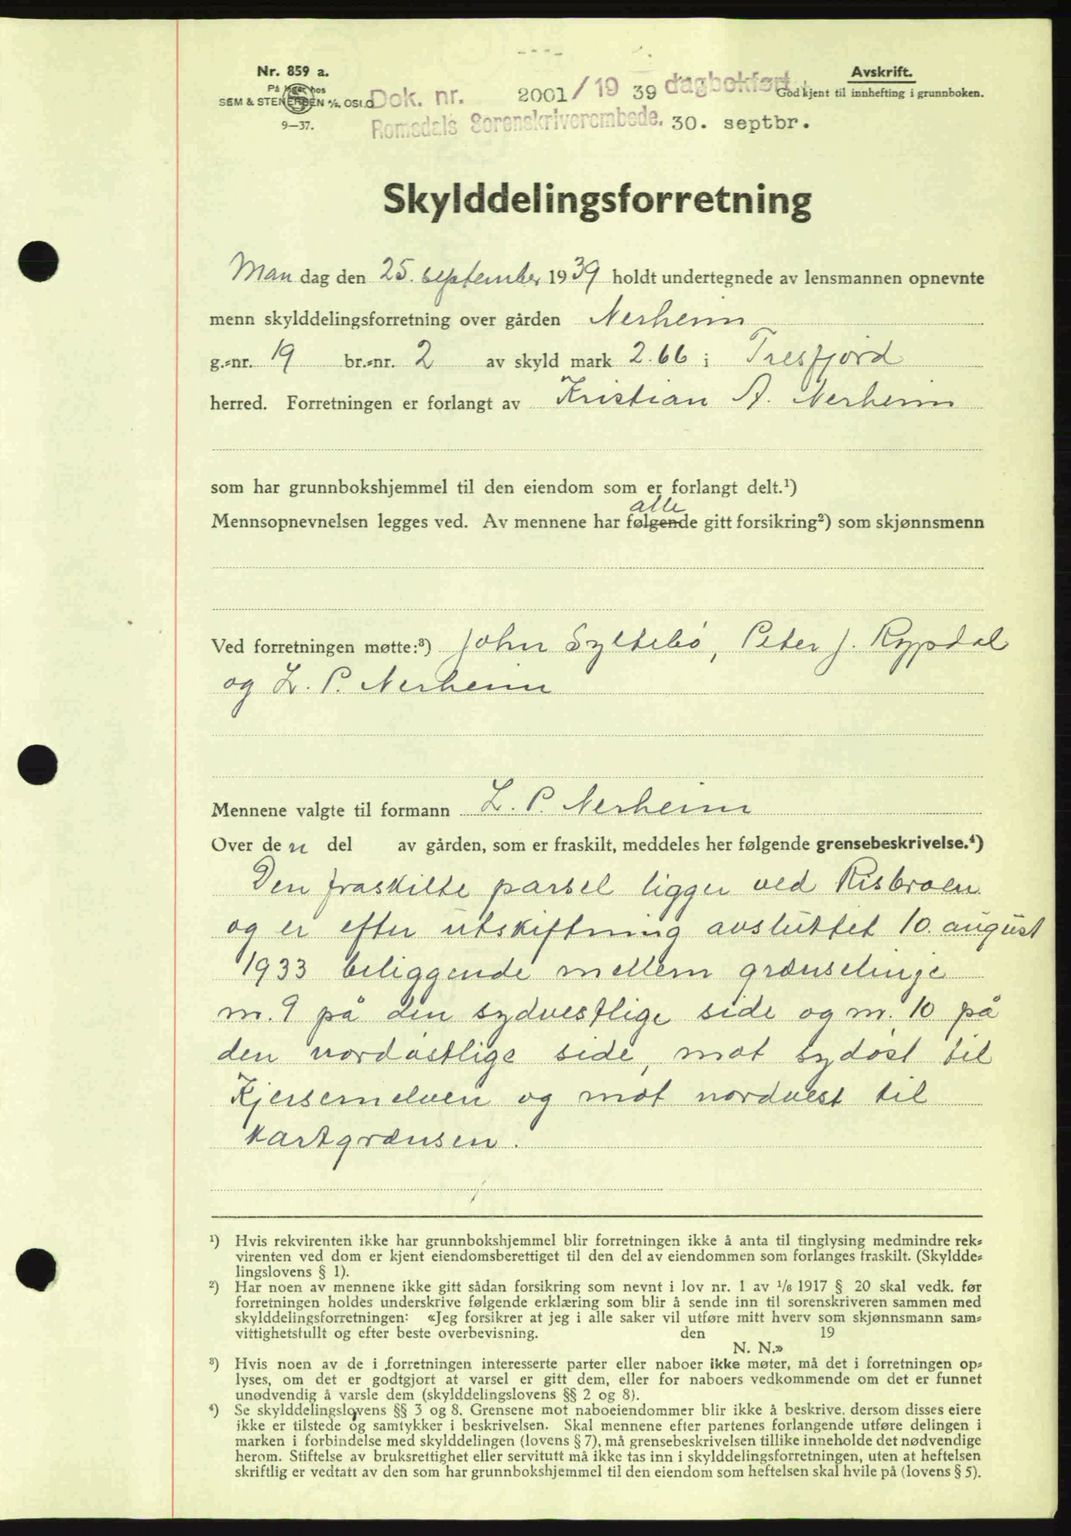 Nr. 859 a.
På lager hos
SEM & STENERSEN A/S, OSLO
9—37.
Dok. nr. 2001/19 39 dagbokført
Romsdals Sorenskriverembede. 30. septbr.
Avskrift.
Godkjent til innhefting i grunnboken.
Skylddelingsforretning
Man dag den 25. september 1939 holdt undertegnede av lensmannen opnevnte
menn skylddelingsforretning over gården Nerheim
g.-nr. 19 br.-nr. 2 av skyld mark 2.66 i Tresfjord
herred. Forretningen er forlangt av Kristian A. Nerheim
som har grunnbokshjemmel til den eiendom som er forlangt delt.¹)
alle
Mennsopnevnelsen legges ved. Av mennene har følgende gitt forsikring²) som skjønnsmenn
Ved forretningen møtte:³) John Syltebø, Peter J. Rypdal
og L. P. Nerheim
Mennene valgte til formann L. P. Nerheim
Over de n del av gården, som er fraskilt, meddeles her følgende grensebeskrivelse.⁴)
Den fraskilte parsel ligger ved Risbroen
og er efter utskiftning avsluttet 10. august
1933 beliggende mellem grænselinje
m. 9 på den sydvestlige side og m. 10 på
den nordøstlige side, mot sydøst til
Kjersemelven og mot nordvest til
kartgrænsen.
¹) Hvis rekvirenten ikke har grunnbokshjemmel blir forretningen ikke å anta til tinglysing medmindre rek-
virenten ved dom er kjent eiendomsberettiget til den del av eiendommen som forlanges fraskilt. (Skyldde-
lingslovens § 1).
²) Har noen av mennene ikke gitt sådan forsikring som nevnt i lov nr. 1 av 1/6 1917 § 20 skal vedk. før
forretningen holdes underskrive følgende erklæring som blir å sende inn til sorenskriveren sammen med
skylddelingsforretningen: «Jeg forsikrer at jeg i alle saker vil utføre mitt hverv som skjønnsmann sam-
vittighetsfullt og efter beste overbevisning. den 19
N. N.»
³) Hvis noen av de i forretningen interesserte parter eller naboer ikke møter, må det i forretningen op-
lyses, om det er godtgjort at varsel er gitt dem, eller for naboers vedkommende om det er funnet
unødvendig å varsle dem (skylddelingslovens §§ 2 og 8).
⁴) Se skylddelingslovens §§ 3 og 8. Grensene mot naboeiendommer blir ikke å beskrive, dersom disses eiere
ikke er tilstede og samtykker i beskrivelsen. Skal mennene efter partenes forlangende utføre delingen i
marken i forbindelse med skylddelingen (lovens § 7), må grensebeskrivelsen tillike inneholde det nødvendige
herom. Stiftelse av bruksrettighet eller servitutt må ikke tas inn i skylddelingsforretningen, uten at heftelsen
skriftlig er vedtatt av den som har grunnbokshjemmel til den eiendom som heftelsen skal hvile på (lovens § 5).